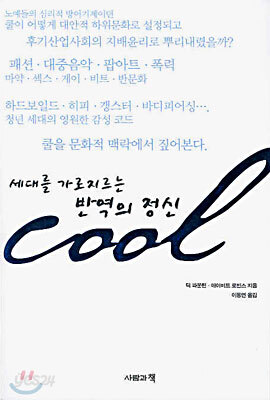 노예들의 심리적 방어기제이던
쿨이 어떻게 대안적 하위문화로 설정되고
후기산업사회의 지배윤리로 뿌리내렸을까?
패션·대중음악·팝아트·폭력
마약·섹스·게이·비트·반문화
하드보일드·히피·갱스터·바디피어싱…,
청년 세대의 영원한 감성 코드
쿨을 문화적 맥락에서 짚어본다.
세대를 가로지르는
반역의 정신
cool
딕 파운틴·데이비드 로빈스 지음
이동연 옮김
사람과책
yes24